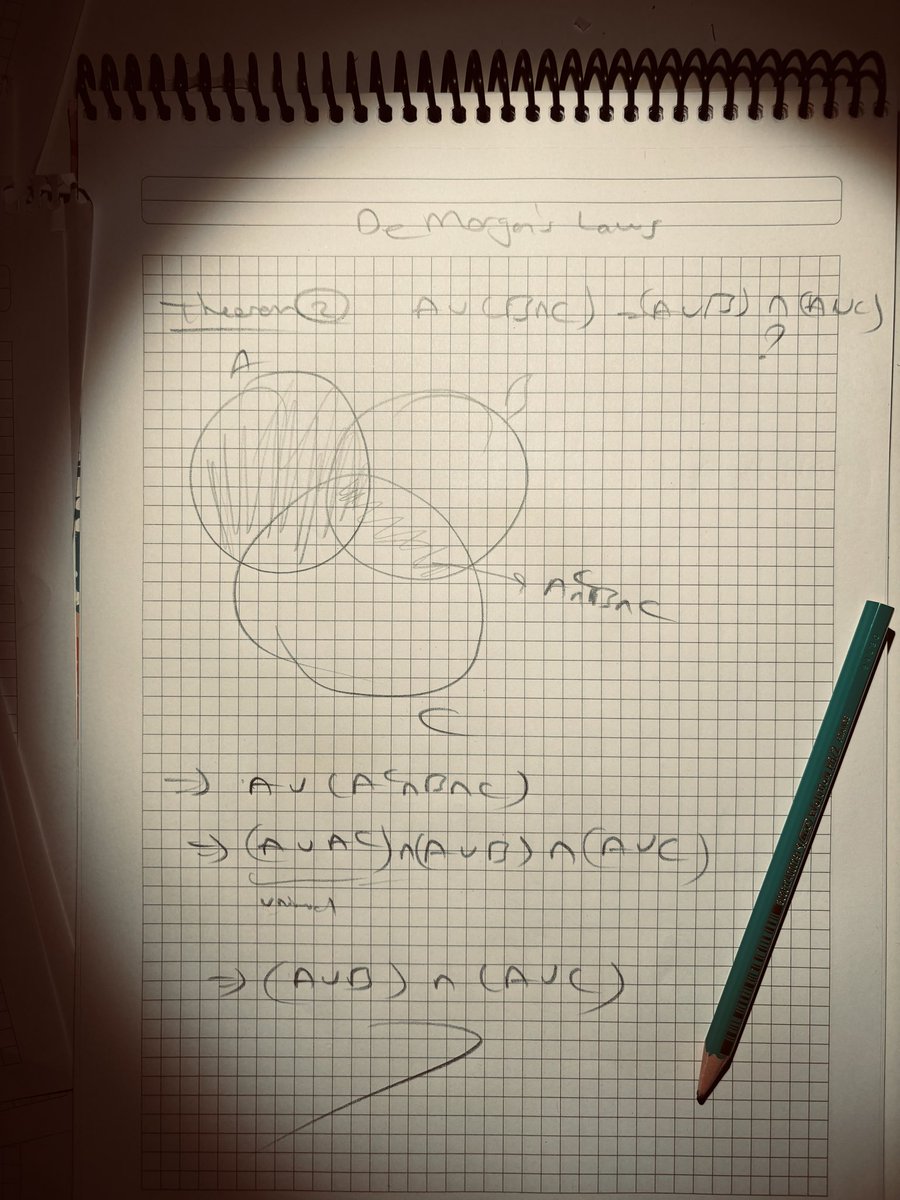 De Morgan's Laws
Theorem 2 A∪(B∩C) = (A∪B) ∩ (A∪C)
?
A
Aᶜ∩B∩C
C
⇒ A∪(Aᶜ∩B∩C)
⇒ (A∪Aᶜ)∩(A∪B)∩(A∪C)
⇒ (A∪B) ∩ (A∪C)